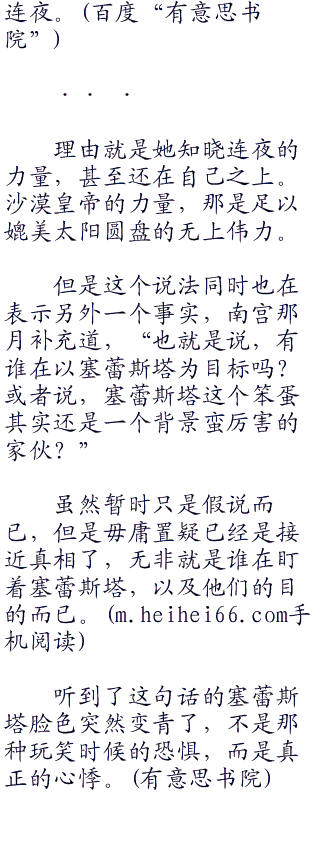 连夜。(百度“有意思书
院”)
. . .
理由就是她知晓连夜的
力量，甚至还在自己之上。
沙漠皇帝的力量，那是足以
媲美太阳圆盘的无上伟力。
但是这个说法同时也在
表示另外一个事实，南宫那
月补充道，“也就是说，有
谁在以塞蕾斯塔为目标吗？
或者说，塞蕾斯塔这个笨蛋
其实还是一个背景蛮厉害的
家伙？”
虽然暂时只是假说而
已，但是毋庸置疑已经是接
近真相了，无非就是谁在盯
着塞蕾斯塔，以及他们的目
的而已。(m.heihei66.com手
机阅读)
听到了这句话的塞蕾斯
塔脸色突然变青了，不是那
种玩笑时候的恐惧，而是真
正的心悸。(有意思书院)